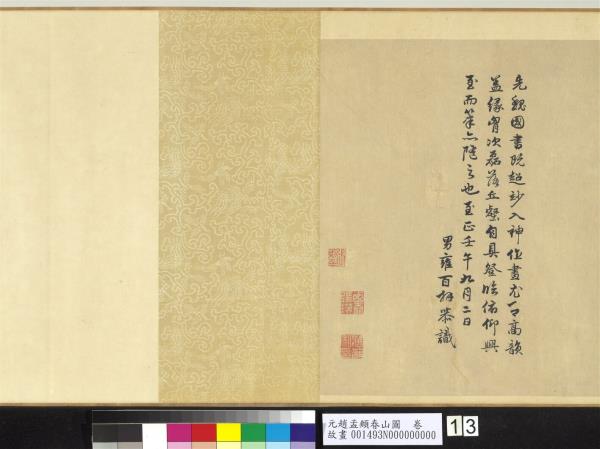 先魏國書既超妙入神作畫尤之高韻
蓋緣胷次磊落丘壑自具登臨俯仰興
至而筆亦隨之也至正壬午九月二日
男雍百拜恭識
元趙孟頫春山圖 卷
故畫 001493N000000000
13